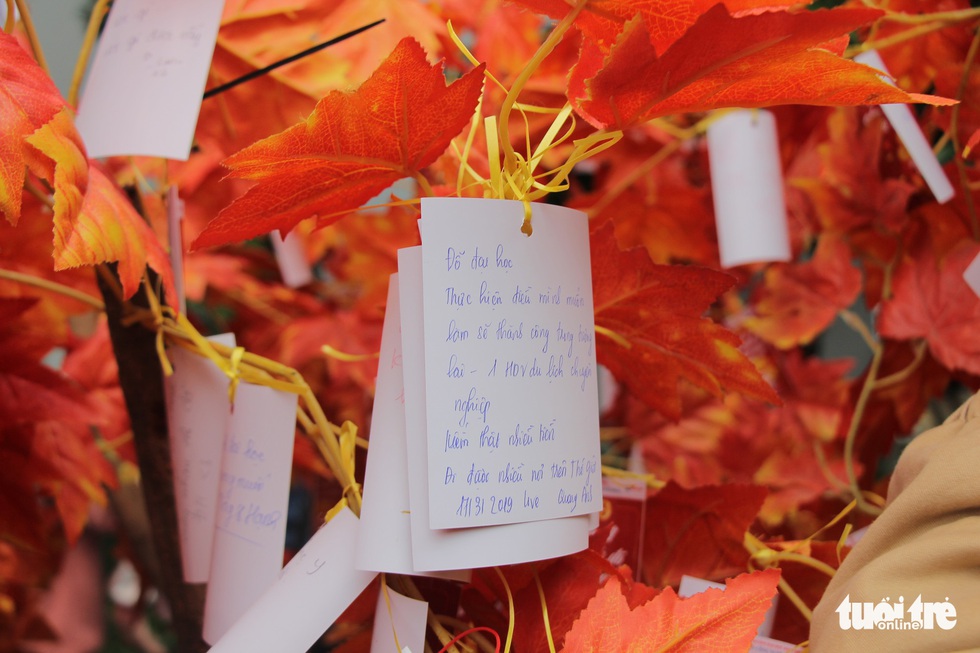 Đỗ đại học
Thực hiện điều mình muốn
làm sẽ thành công trong tương
lai - 1 HDV du lịch chuyên
nghiệp
Kiếm thật nhiều tiền
Đi được nhiều nơi trên Thế giới
2019 live Quang Anh
tuổi trẻ
online